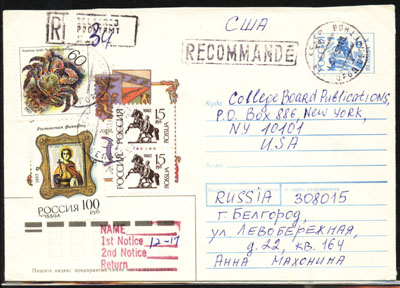 США
R
84
RECOMMANDÉ
60
РОССИЯ 15
1992
РОССИЯ 15
1992
РОССИЯ 100
РУБ.
Куда
College Board Publications,
P.O. Box 886, New York,
NY 10101
USA
RUSSIA 308015
г. Белгород,
ул. ЛЕВОБЕРЕЖНАЯ,
д. 22, кв. 164
Анна Махонина
NAME
1st Notice 12-17
2nd Notice
Return
Пишите индекс предприятия связи